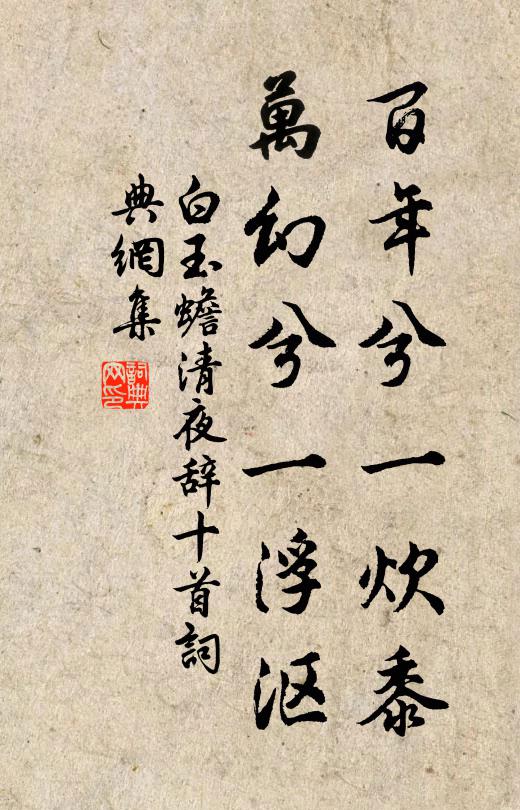 百年兮一炊黍
萬幻兮一浮沤
白玉蟾清夜辞十首詞
典網集
詞典网印